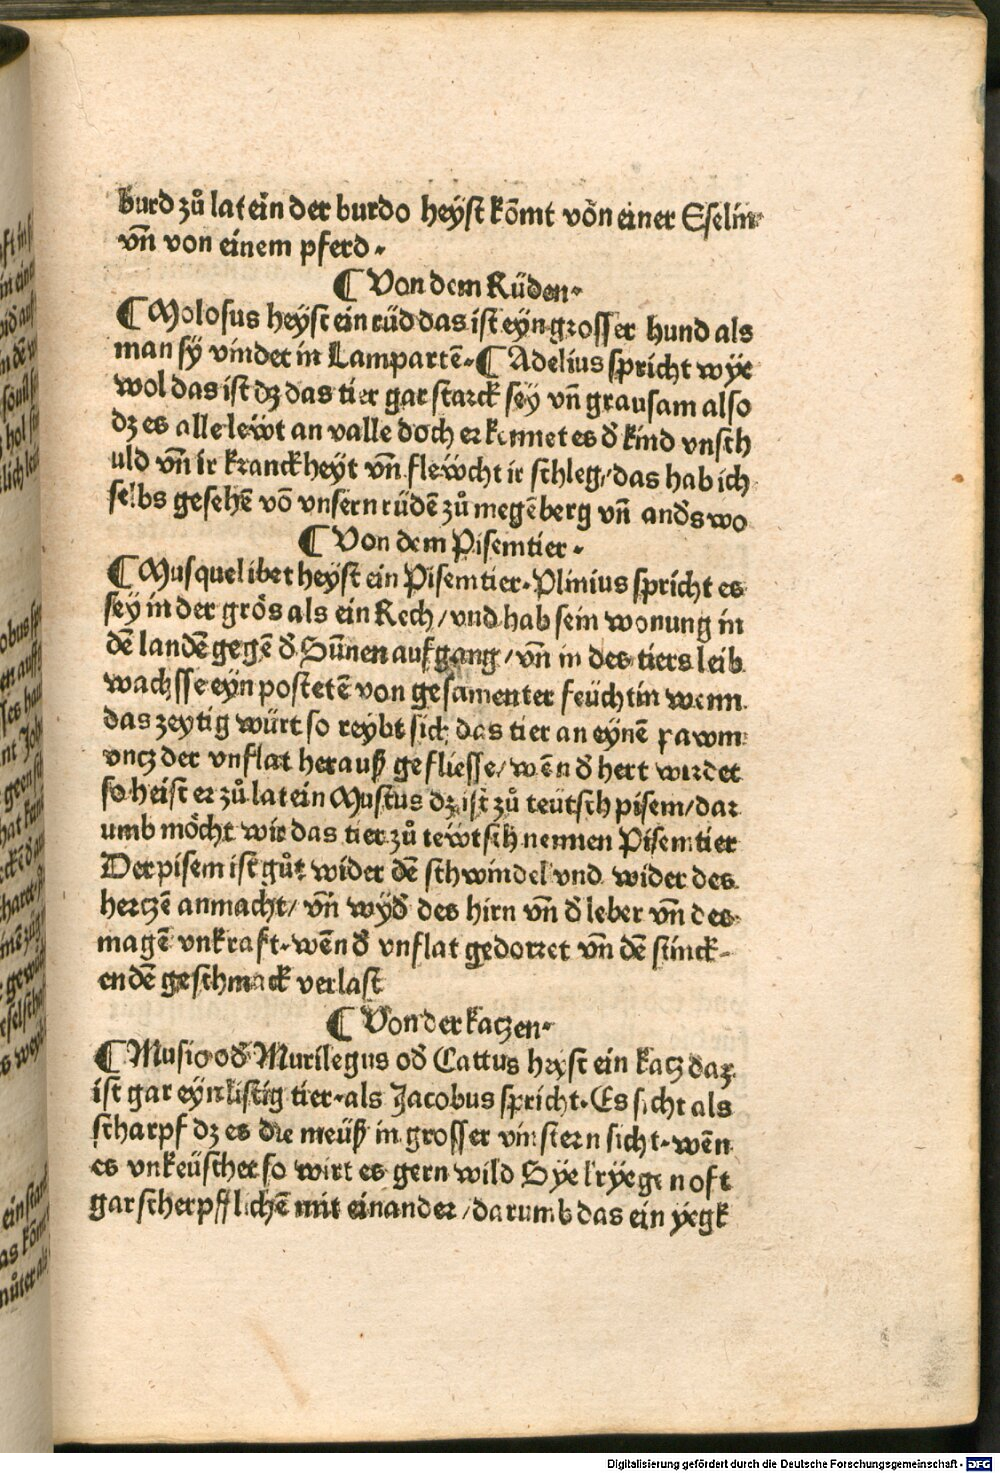 burd zů latein der burdo heyst kōmt vōn einer Eselin
vn̄ von einem pferd.
¶ Von dem Rüden.
¶ Molosus heyst ein rüd das ist eyn grosser hund als
man sy vindet in Lampartē. ¶ Adelius spricht wye
wol das ist dz das tier gar starck sey vn̄ grausam also
dz es alle lewt an valle doch erkennet es d̄ kind vnsch
uld vn̄ ir kranckheyt vn̄ flewcht ir schleg/das hab ich
selbs gesehē vō vnsern rüdē zů megēberg vn̄ and̄s wo
¶ Von dem Pisemtier.
¶ Musquelibet heyst ein Pisemtier. Plinius spricht es
sey in der grös als ein Rech/vnd hab sein wonung in
dē landē gegē d̄ Sūnen aufgang/vn̄ in des tiers leib
wachsse eyn postetē von gesamenter feüchtin wenn
das zeytig würt so reybt sich das tier an eynē pawm
vncz der vnflat herauß gefliesse/wēn d̄ hert wirdet
so heist er zů latein Mustus dz ist zů teütsch pisem/dar
umb möcht wir das tier zů tewtsch nennen Pisemtier
Der pisem ist gůt wider dē schwindel vnd wider des
herczē anmacht/vn̄ wyd̄ des hirn vn̄ d̄ leber vn̄ des
magē vnkraft. wēn d̄ vnflat gedorret vn̄ dē stinck-
endē geschmack verlast
¶ Von der kaczen.
¶ Musio od̄ Murilegus od̄ Cattus heyst ein kacz daz
ist gar eyn listig tier. als Jacobus spricht. Es sicht als
scharpf dz es die meüß in grosser vinstern sicht. wēn
es vnkeüschet so wirt es gern wild Sye kryegen oft
gar scherpfflichē mit einander/darumb das ein yegk
Digitalisierung gefördert durch die Deutsche Forschungsgemeinschaft - DFG